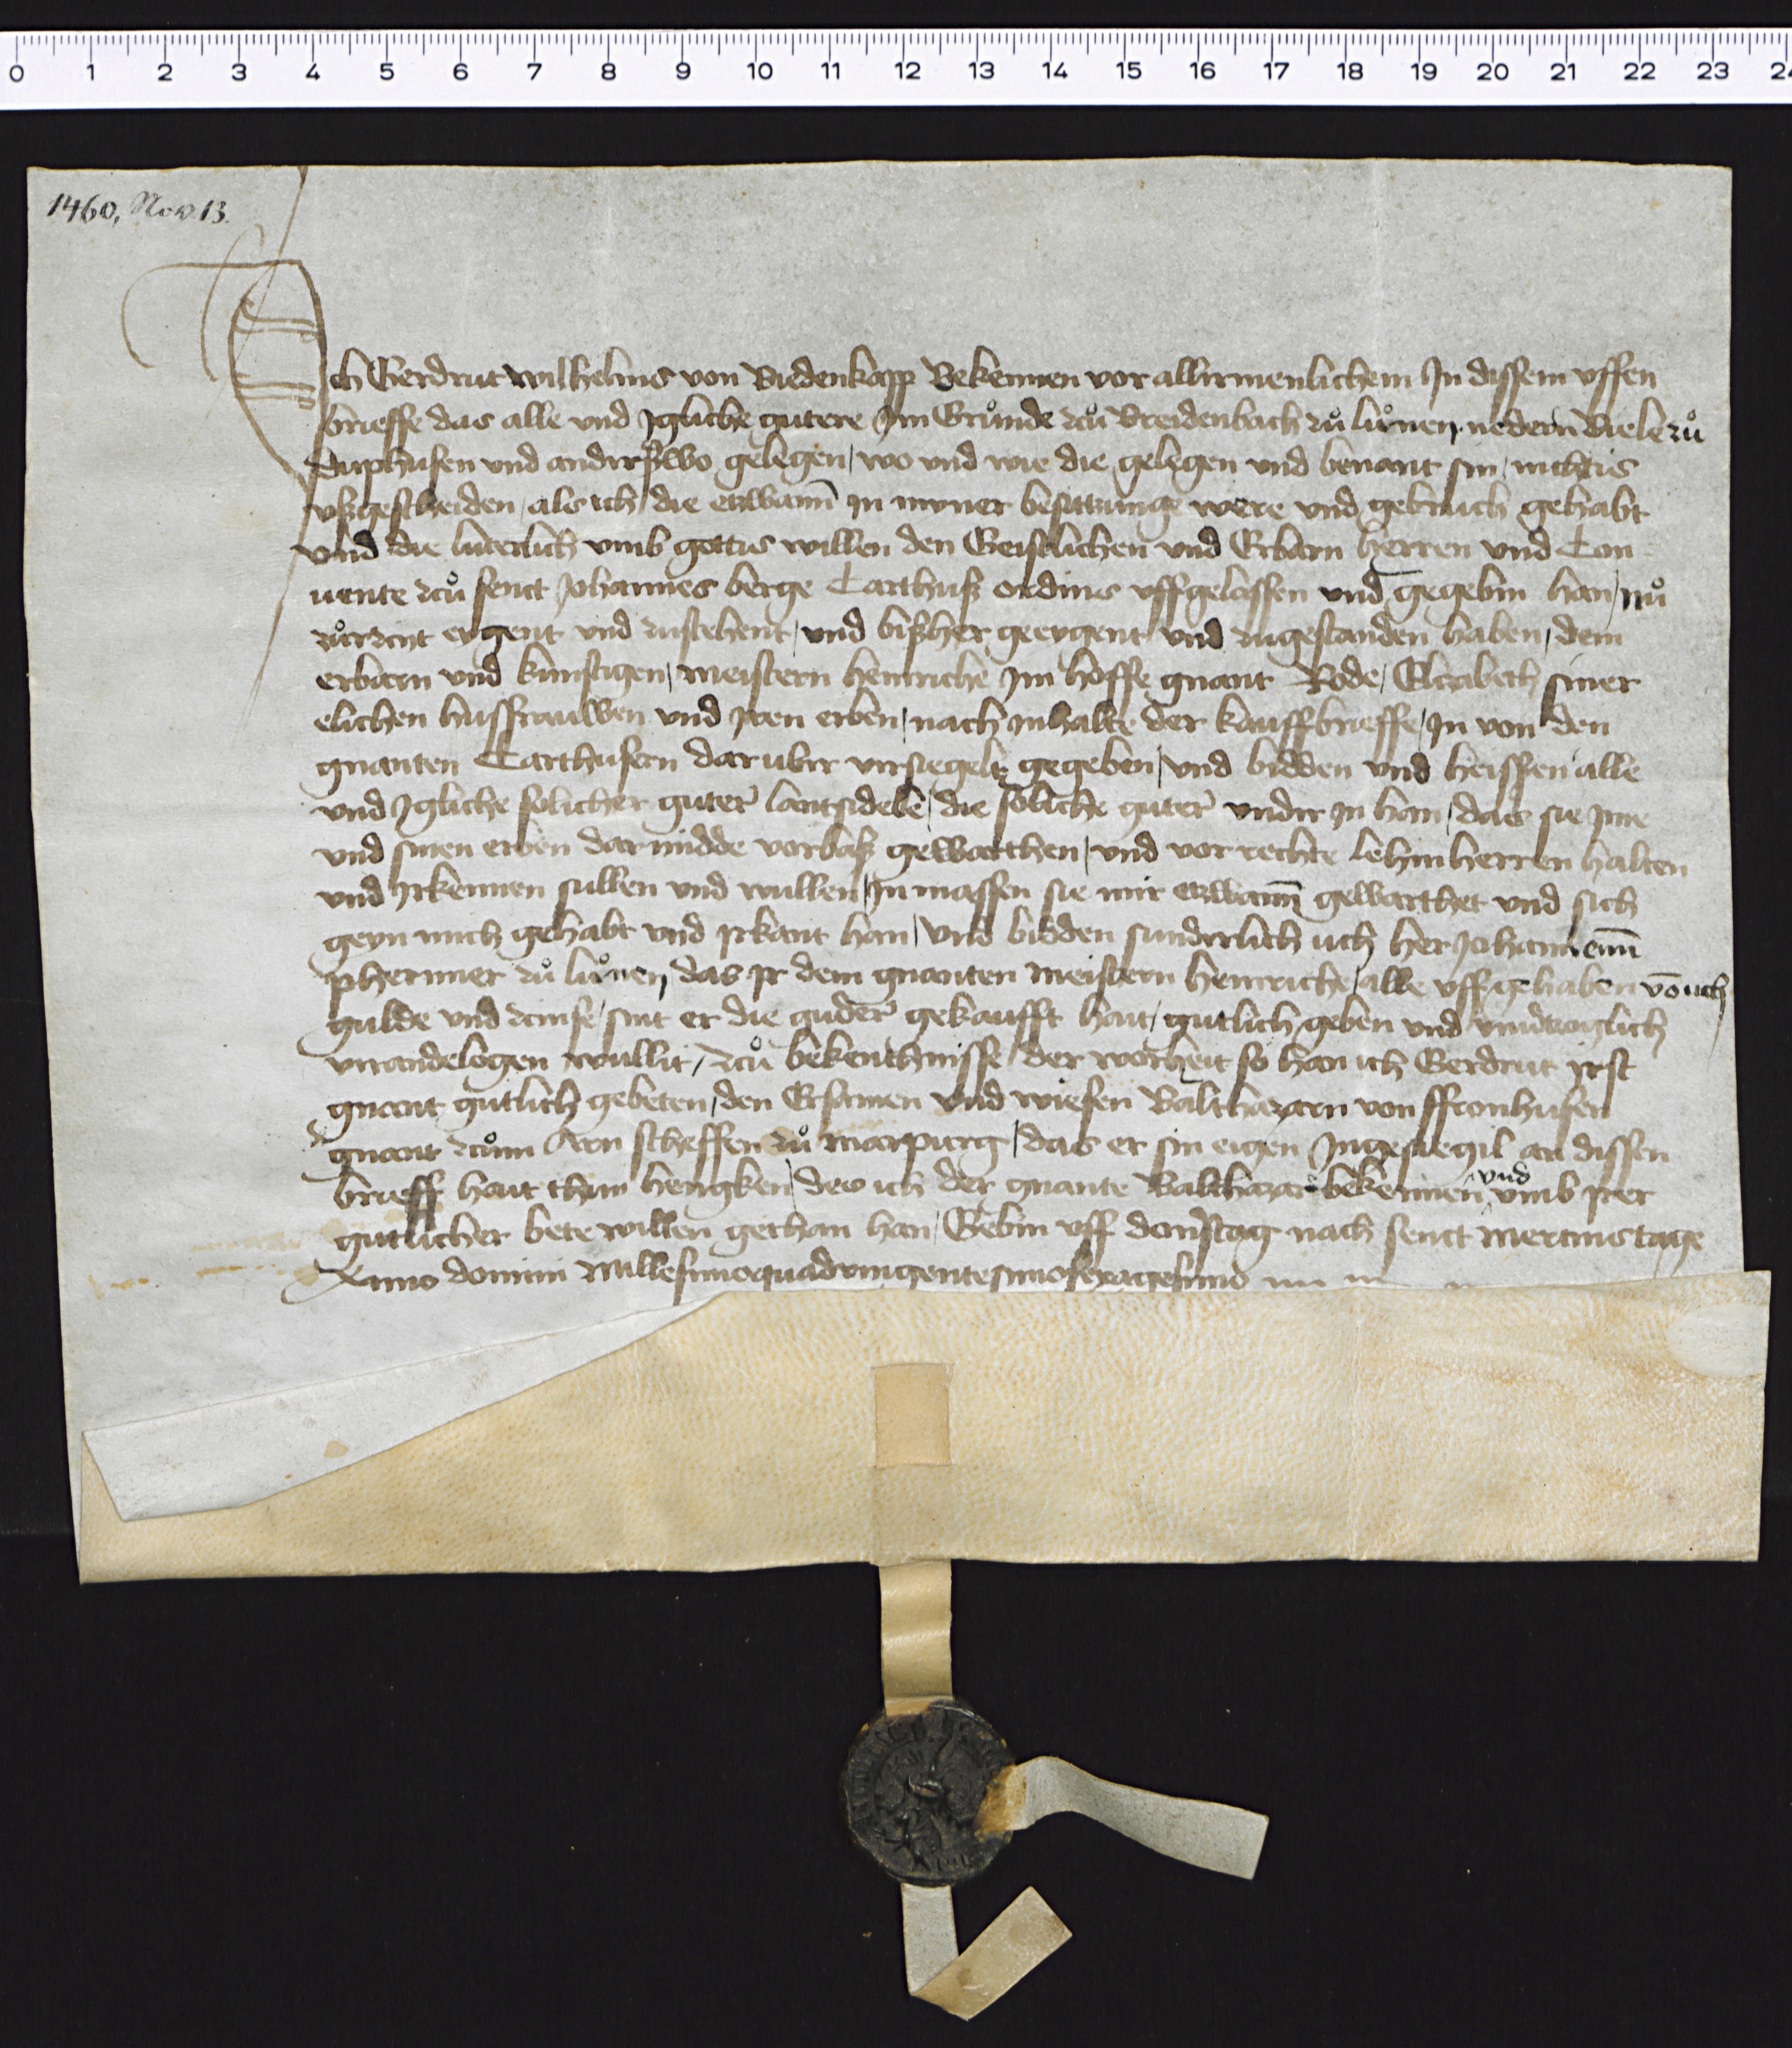 0 1 2 3 4 5 6 7 8 9 10 11 12 13 14 15 16 17 18 19 20 21 22 23 24
1460, Nov. 13.
Ich Gerdrut wilhelms von Biedenkapp Bekennen vor allirmenlichem In dissem uffen
brieffe das alle und Igliche gutere Im Grůnde zců Breidenbach zů lůxnen nedern Biele zů
Duphusen und andirßwo gelegen / wo und wie die gelegen und benant sin / nichtis
ußgescheiden / als ich die etzwann in myner besitzunge were und gebruch gehabt
und die luterlich umb gottis willen den Geistlichen und Erbarn herren und Con
vente zců senct Johannes berge Carthuß ordins uffgelassen und gegebin han / nů
zůrzcyt eygent und zustehent / und bißher geeygent und zugestanden haben / dem
erbarn und kunstigen / meistern henriche Im hoffe gnant Rode / Elizabeth siner
elichen husfrauwen und iren erben / nach inhalte der kauffbrieffe / In von den
gnanten Carthusern darubir virsiegelt gegeben / und bidden und heissen alle
und Igliche solicher guter lantsidele / die soliche guter undir in han / das sie ime
und sinen erben darmidde vorbaß gewarthen / und vor rechte lehinherren halten
und irkennen sullen und wullen / In massen sie mir etzwann gewarthet und sich
geyn mich gehabt und irkant han / und bidden sundirlich uch her Johann
pherrner zů lůxnen das ir dem gnanten meistern henriche / alle uffgehaben von uch
gulde und zcinse / sint er die guder gekaufft hait / gutlich geben und unvirzoglich
virandelogen wullit / zců bekenthnisse der warheit so han ich Gerdrut irst
gnant gutlich gebeten / den Ersamen und wiesen Balthazarn von ffronhusen
gnant zcům Arn scheffen zů marpurg / das er sin eigen Ingesiegil an dissen
brieff hait thun hengken / des ich der gnante Balthazar bekennen und umb irer
gutlicher bete willen gethan han / Gebin uff donrstag nach senct mertins tage
Anno domini millesimoquadringentesimosexagesimo